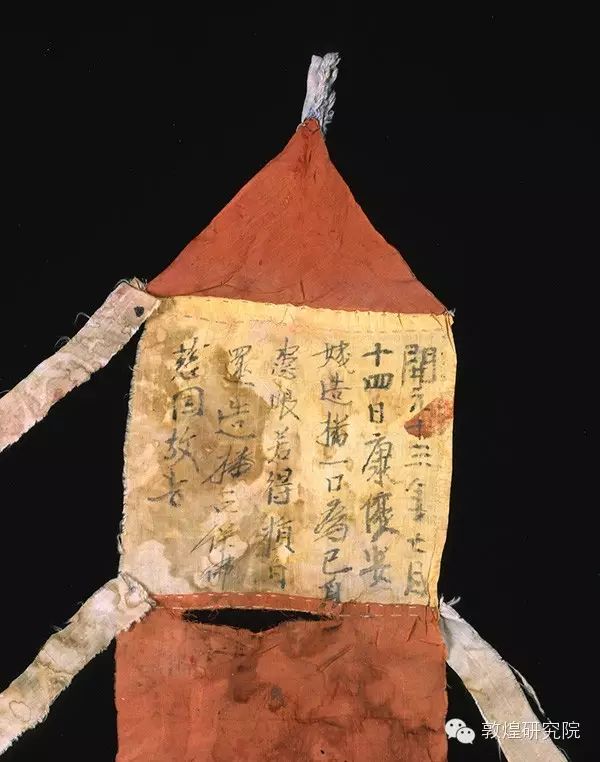 開元十三年七月
十四日康優婆
姨造播一口為己身
患眼若得損日
還造播一口保佛
慈因故告
敦煌研究院